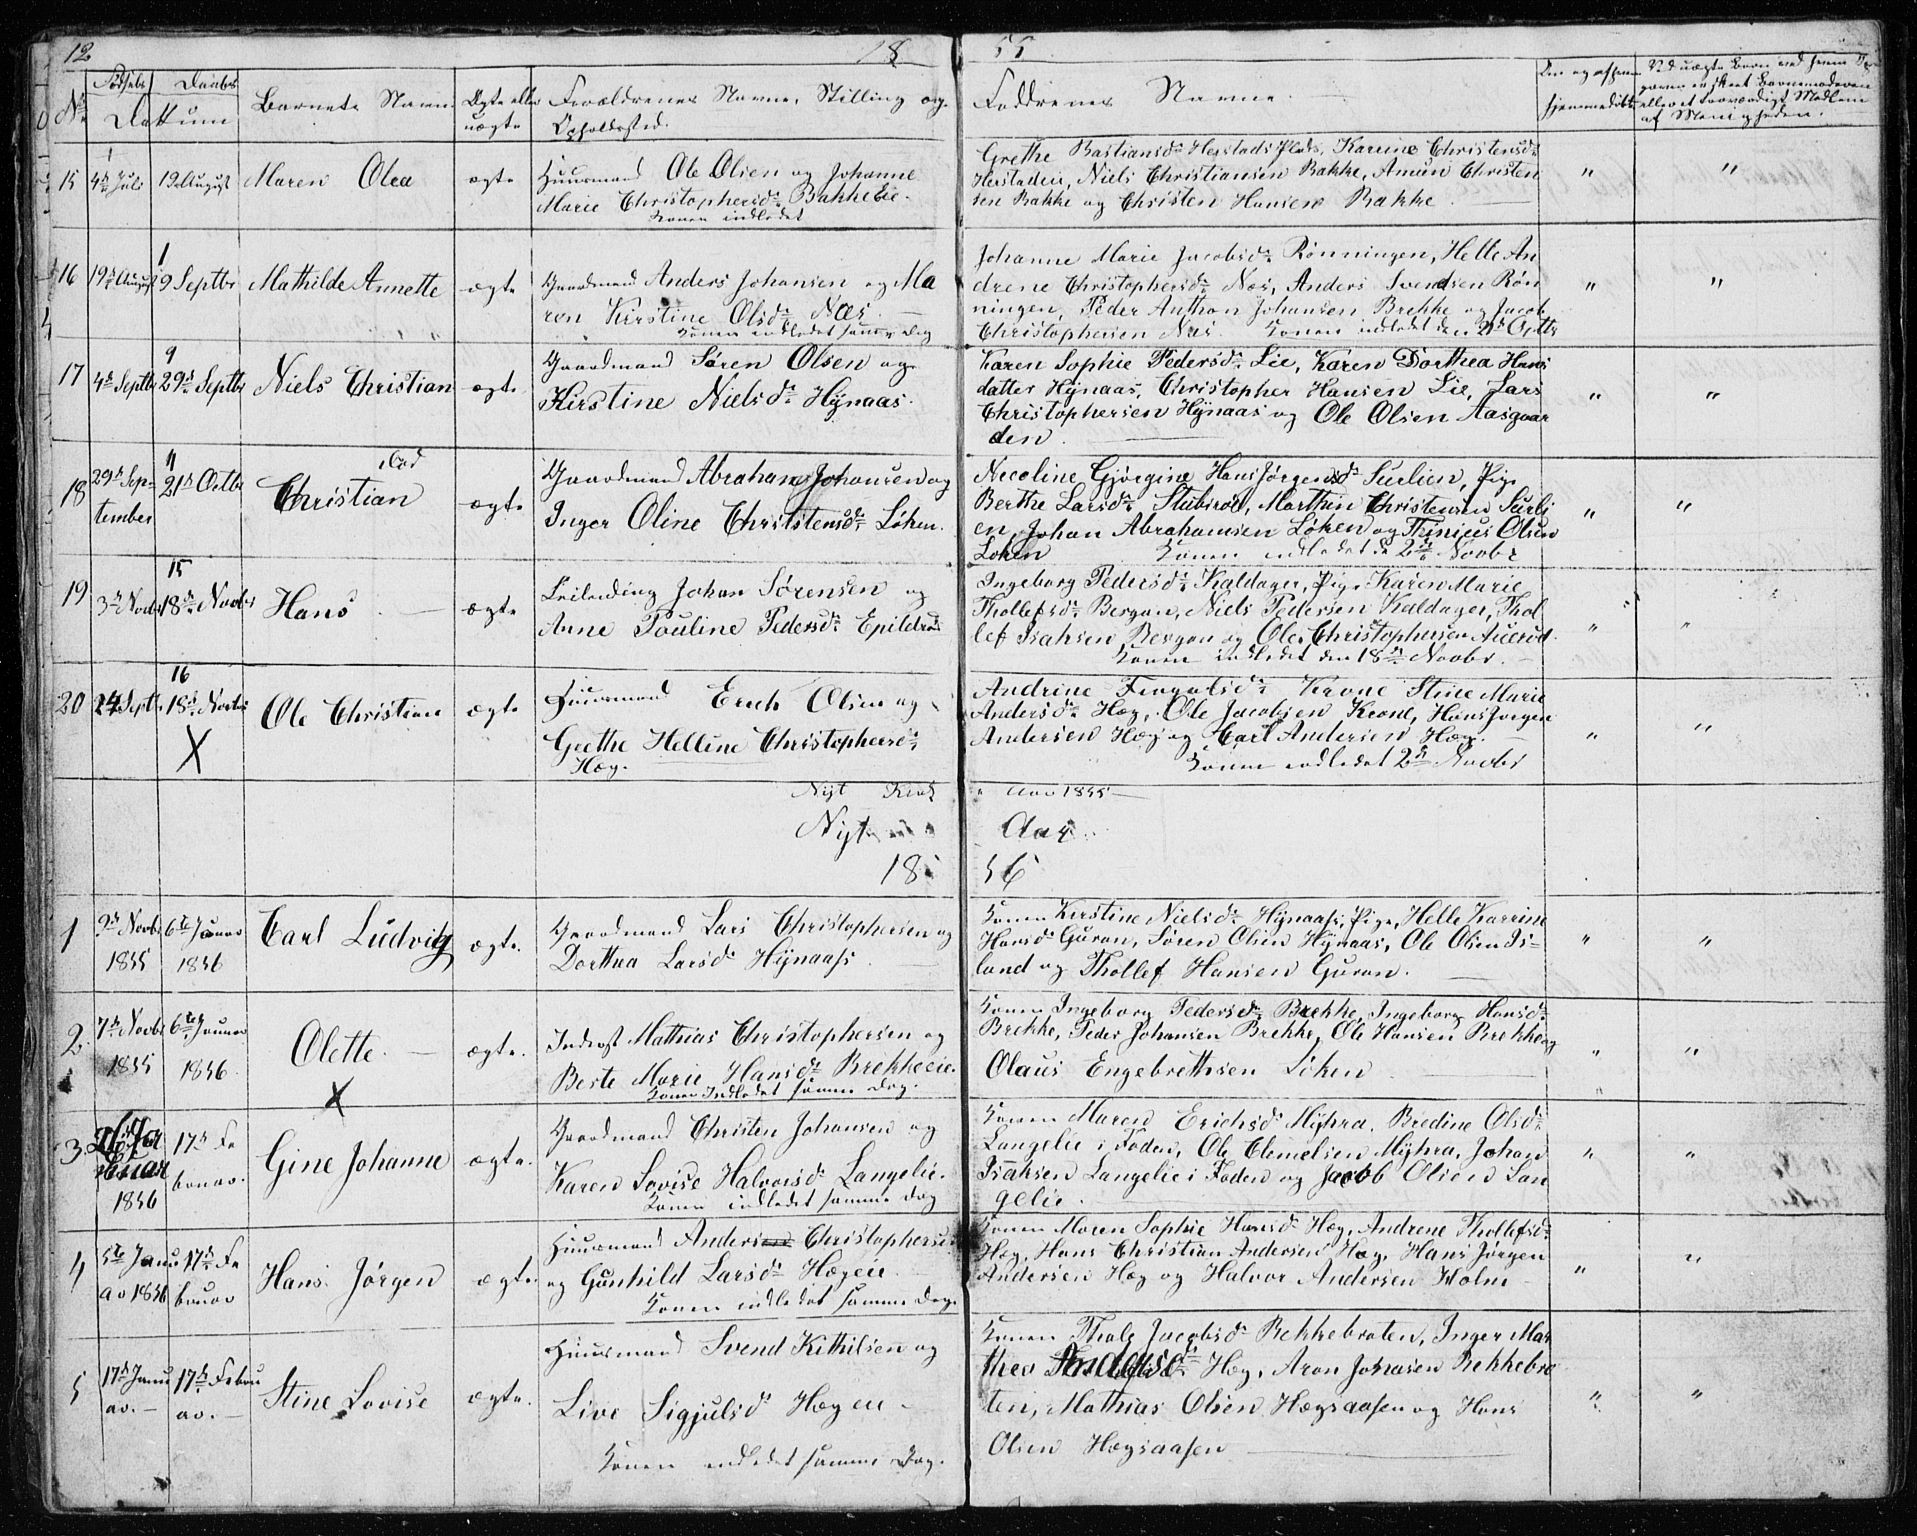 12 18 55
Fødsels Daabs
No Dattum Barnets Navn Ægte eller Forældrenes Navne, Stilling og Faddrenes Navne
uægte Opholdssted.
15 4de Juli 19 August Maren Olea ægte Huusmand Ole Olsen og Johanne
Marie Christophersdr Bakkeeie.
Konen indledet
Grethe Bastiansdr Herstads Plads, Karine Christensdr
Herstaden, Niels Christiansen Bakke, Amun Christen
sen Bakke og Christen Hansen Bakke " "
16 19de August 9 Septbr Mathilde Annette ægte Gaardmand Anders Johansen og Ma
ren Kirstine Olsdr Næs.
Konen indledet samme Dag
Johanne Marie Jacobsdr Rønningen, Helle An
drene Christophersdr Næs, Anders Svendsen Røn
ningen, Peder Anthon Johansen Brekke og Jacob
Christophersen Næs Konen indledet den
" "
17 4de Septbr 29de Septbr Niels Christian ægte Gaardmand Søren Olsen og
Kirstine Nielsdr Hÿnaas.
Karen Sophie Pedersdr Lie, Karen Dorthea Hans
datter Hÿnaas, Christopher Hansen Lie, Lars
Christophersen Hÿnaas og Ole Olsen Aasgaar
den. " "
18 29de Sep- 21de Octbr Christian ægte Gaardmand Abraham Johansen og
tember Inger Oline Christensdr Løken.
Necoline Gjørgine Hans Jørgensdr Suelien, Pige
Berthe Larsdr Stubsrød, Marthin Christensen Surli
en, Johan Abrahamsen Løken og Thinius Olsen
Løken Konen indledet de 2de Novbr
" "
19 3de Novbr 18de Novbr Hans ægte Leilending Johan Sørensen og
Anne Pouline Pedersdr
Ingeborg Pedersdr Kaldager, Pige Karen Marie
Thollefsdr Bergan, Niels Pedersen Kaldager, Thol
lef Isaksen Bergan og Ole Christophersen
Konen indledet den 18de Novbr.
" "
20 24 Septb. 18de Novbr Ole Christian ægte Huusmand Erich Olsen og
X Grethe Helline Christophersdr
Hæg.
Andrine Krone Stine Marie
Andersdr Hæg, Ole Jacobsen Krone, Hans Jørgen
Andersen Hæg og Carl Andersen Hæg.
Konen indledet 2de Novbr
" "
Nyt Kirk Aar 1855
Nyt Aar
18 56
1 9de Novbr 6te Januar Carl Ludvig ægte. Gaardmand Lars Christophersen og
1855 1856 Dorthea Larsdr Hÿnaass
Konen Kirstine Nielsdr Hÿnaass, Pige, Helle Karrine
Hansdr Guran, Søren Olsen Hÿnaas, Ole Olsen Is-
land og Thollef Hansen Guran.
" "
2. 7de Novbr 6te Januar Olette. ægte. Inderst Mathias Christophersen og
1855 1856. Berte Marie Hansdr Brekkeeie.
X Konen Indledet samme Dag.
Konen Ingeborg Pedersdr Brekke, Ingeborg Hansdr
Brekke, Peder Johansen Brekke, Ole Hansen Brekke og
Olaus Engebrethsen Løken
" "
3. 17de Fe Gine Johanne ægte. Gaardmand Christen Johansen og
1856 bruar. Karen Lovise Halvorsdr Langelie.
Konen indledet samme Dag
Konen Maren Erichsdr Mÿhra, Bredine Olsdr
Langelie i Foden, Ole Clemetsen Mÿhra, Johan
Isaksen Langelie i Foden og Jacob Olsen Lan
gelie.
" "
4 5te Janu 17de Fe Hans Jørgen ægte. Huusmand Anders Christophersen
ar 1856 bruar og Gunhild Larsdr Hægeie.
Konen indledet samme Dag.
Konen Maren Sophie Hansdr Hæg, Andrene Thollefsdr
Hæg, Hans Christian Andersen Hæg, Hans Jørgen
Andersen Hæg og Halvor Andersen Holm
" "
5 17de Janu 17de Febru Stine Lovise ægte. Huusmand Svend Kittilsen og
ar. ar. Live Sigjulsdr Hægeie
Konen indledet samme Dag.
Konen Thale Jacobsdr Bekkebraten, Inger Mar
thea Hæg, Aron Johnasen Bekkebra
ten, Mathias Olsen Hægsaasen og Hans
Olsen Hægsaasen
" "